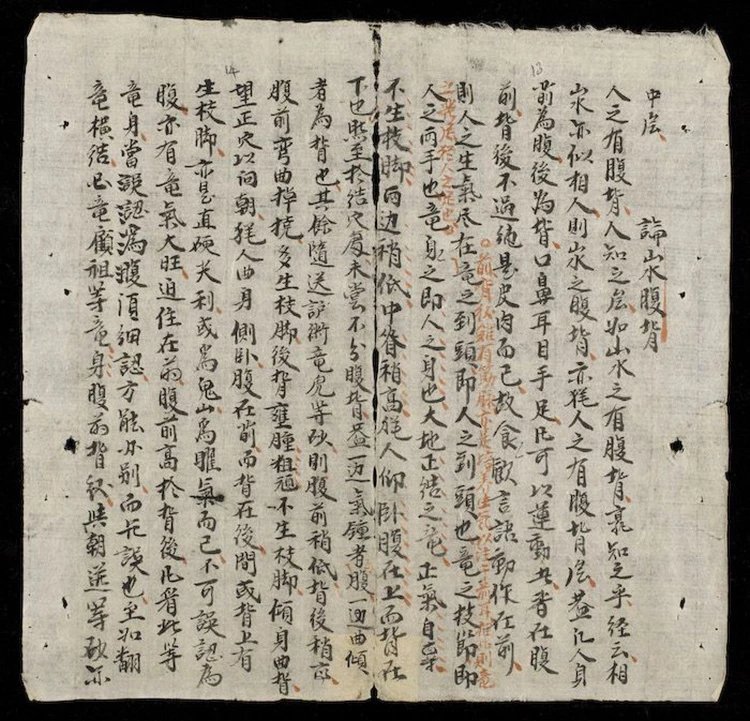 中层
論山水腹背
人之有腹背人知之层如山水之有腹背裏知之乎经云相
山水亦似相人則山水之腹背亦猶人之有腹背层葢凡人身
前為腹後為背口鼻耳目手足凡可以運動者皆在腹
前背後不過純是皮肉而已故食飲言語動作在前
則人之生氣尽在竜之到頭即人之到頭也竜之枝節即
人之両手也竜身之即人之身也大地正結之竜正氣自
不生枝脚両边稍低中脊稍高猶人仰卧腹在上而背在
下也然至於結穴處未嘗不分腹背葢一边氣鍾者腹一边曲傾
者為背也其餘隨送護衛竜虎等砂則腹前稍低背後稍高
腹前弯曲掉撓多生枝脚後背壅腫粗頑不生枝脚傾身曲背
望正穴以向朝猶人曲身側卧腹在前而背在後間或背上有
生枝脚亦是直硬尖利或為鬼山為曜氣而已不可誤認為
腹亦有竜氣大旺迫住在前腹前高於背後凡看此等
竜身當誤認為腹須細認方能分別而无誤也至如翻
竜横結囘竜顧祖等竜身腹前背後與朝迎等砂亦